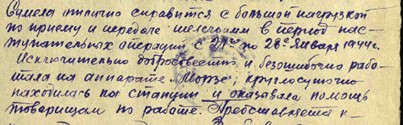 Сумела отлично справится с большой нагрузкой
по приему и передаче телеграмм в период нас-
тупательных операций с 21 по 28е января 1944 г.
Исключительно добросовестно и безошибочно рабо-
тала на аппарате "Морзе", круглосуточно
находилась на станции и оказывала помощь
товарищам по работе. Представляется к